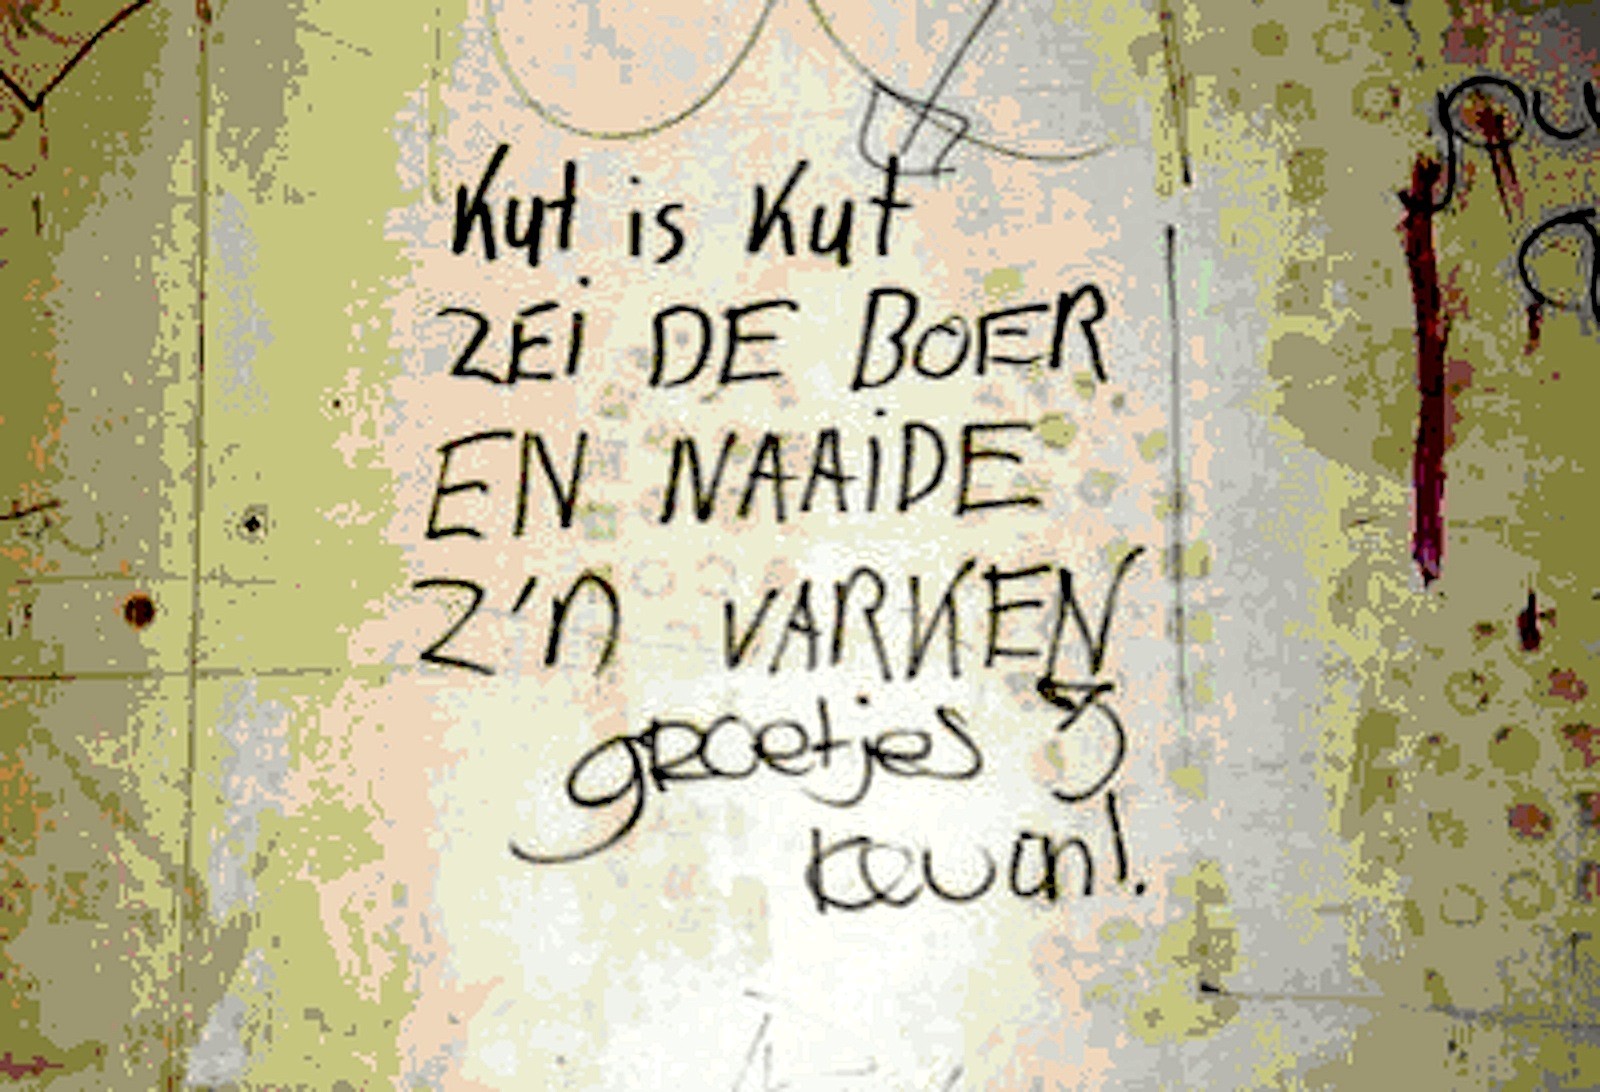 Kut is Kut
ZEi DE BOER
EN NAAiDE
Z'n VARKEN
groetjes